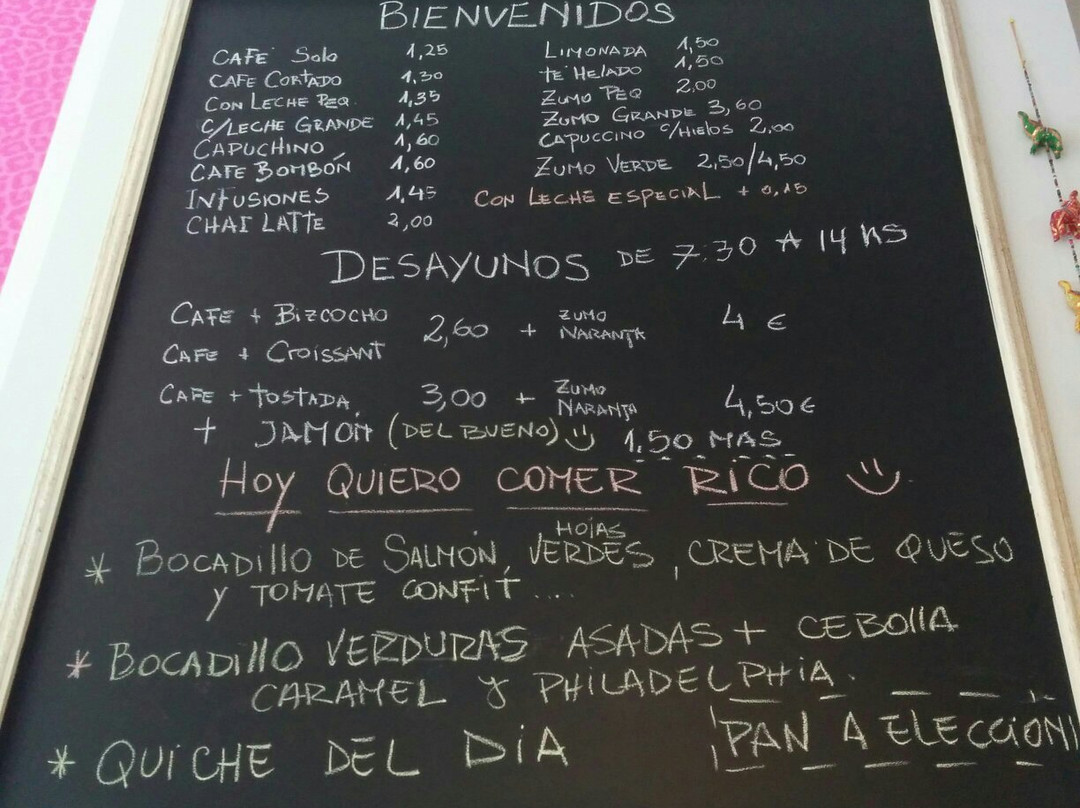 BIENVENIDOS
CAFE Solo 1,25
CAFE CORTADO 1,30
CON LECHE PEQ. 1,35
C/LECHE GRANDE 1,45
CAPUCHINO 1,60
CAFE BOMBÓN 1,60
INFUSIONES 1,45
CHAI LATTE 2,00
LIMONADA 1,50
TE HELADO 1,50
ZUMO PEQ 2,00
ZUMO GRANDE 3,60
CAPUCCINO C/HIELOS 2,00
ZUMO VERDE 2,50/4,50
CON LECHE ESPECIAL + 0,15
DESAYUNOS DE 7:30 A 14 HS
CAFE + BIZCOCHO
CAFE + CROISSANT
2,60 + ZUMO NARANJA 4 €
CAFE + TOSTADA 3,00 + ZUMO NARANJA 4,50€
+ JAMON (DEL BUENO) 1,50 MAS
HOY QUIERO COMER RICO
* BOCADILLO DE SALMÓN, HOJAS VERDES, CREMA DE QUESO
Y TOMATE CONFIT ....
* BOCADILLO VERDURAS ASADAS + CEBOLLA
CARAMEL Y PHILADELPHIA.
* QUICHE DEL DIA
¡PAN A ELECCIÓN!